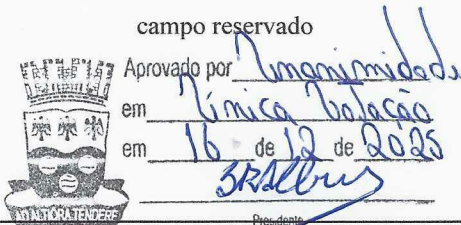 campo reservado
Aprovado por Unanimidade
em Única Votação
em 16 de 12 de 2025
Presidente